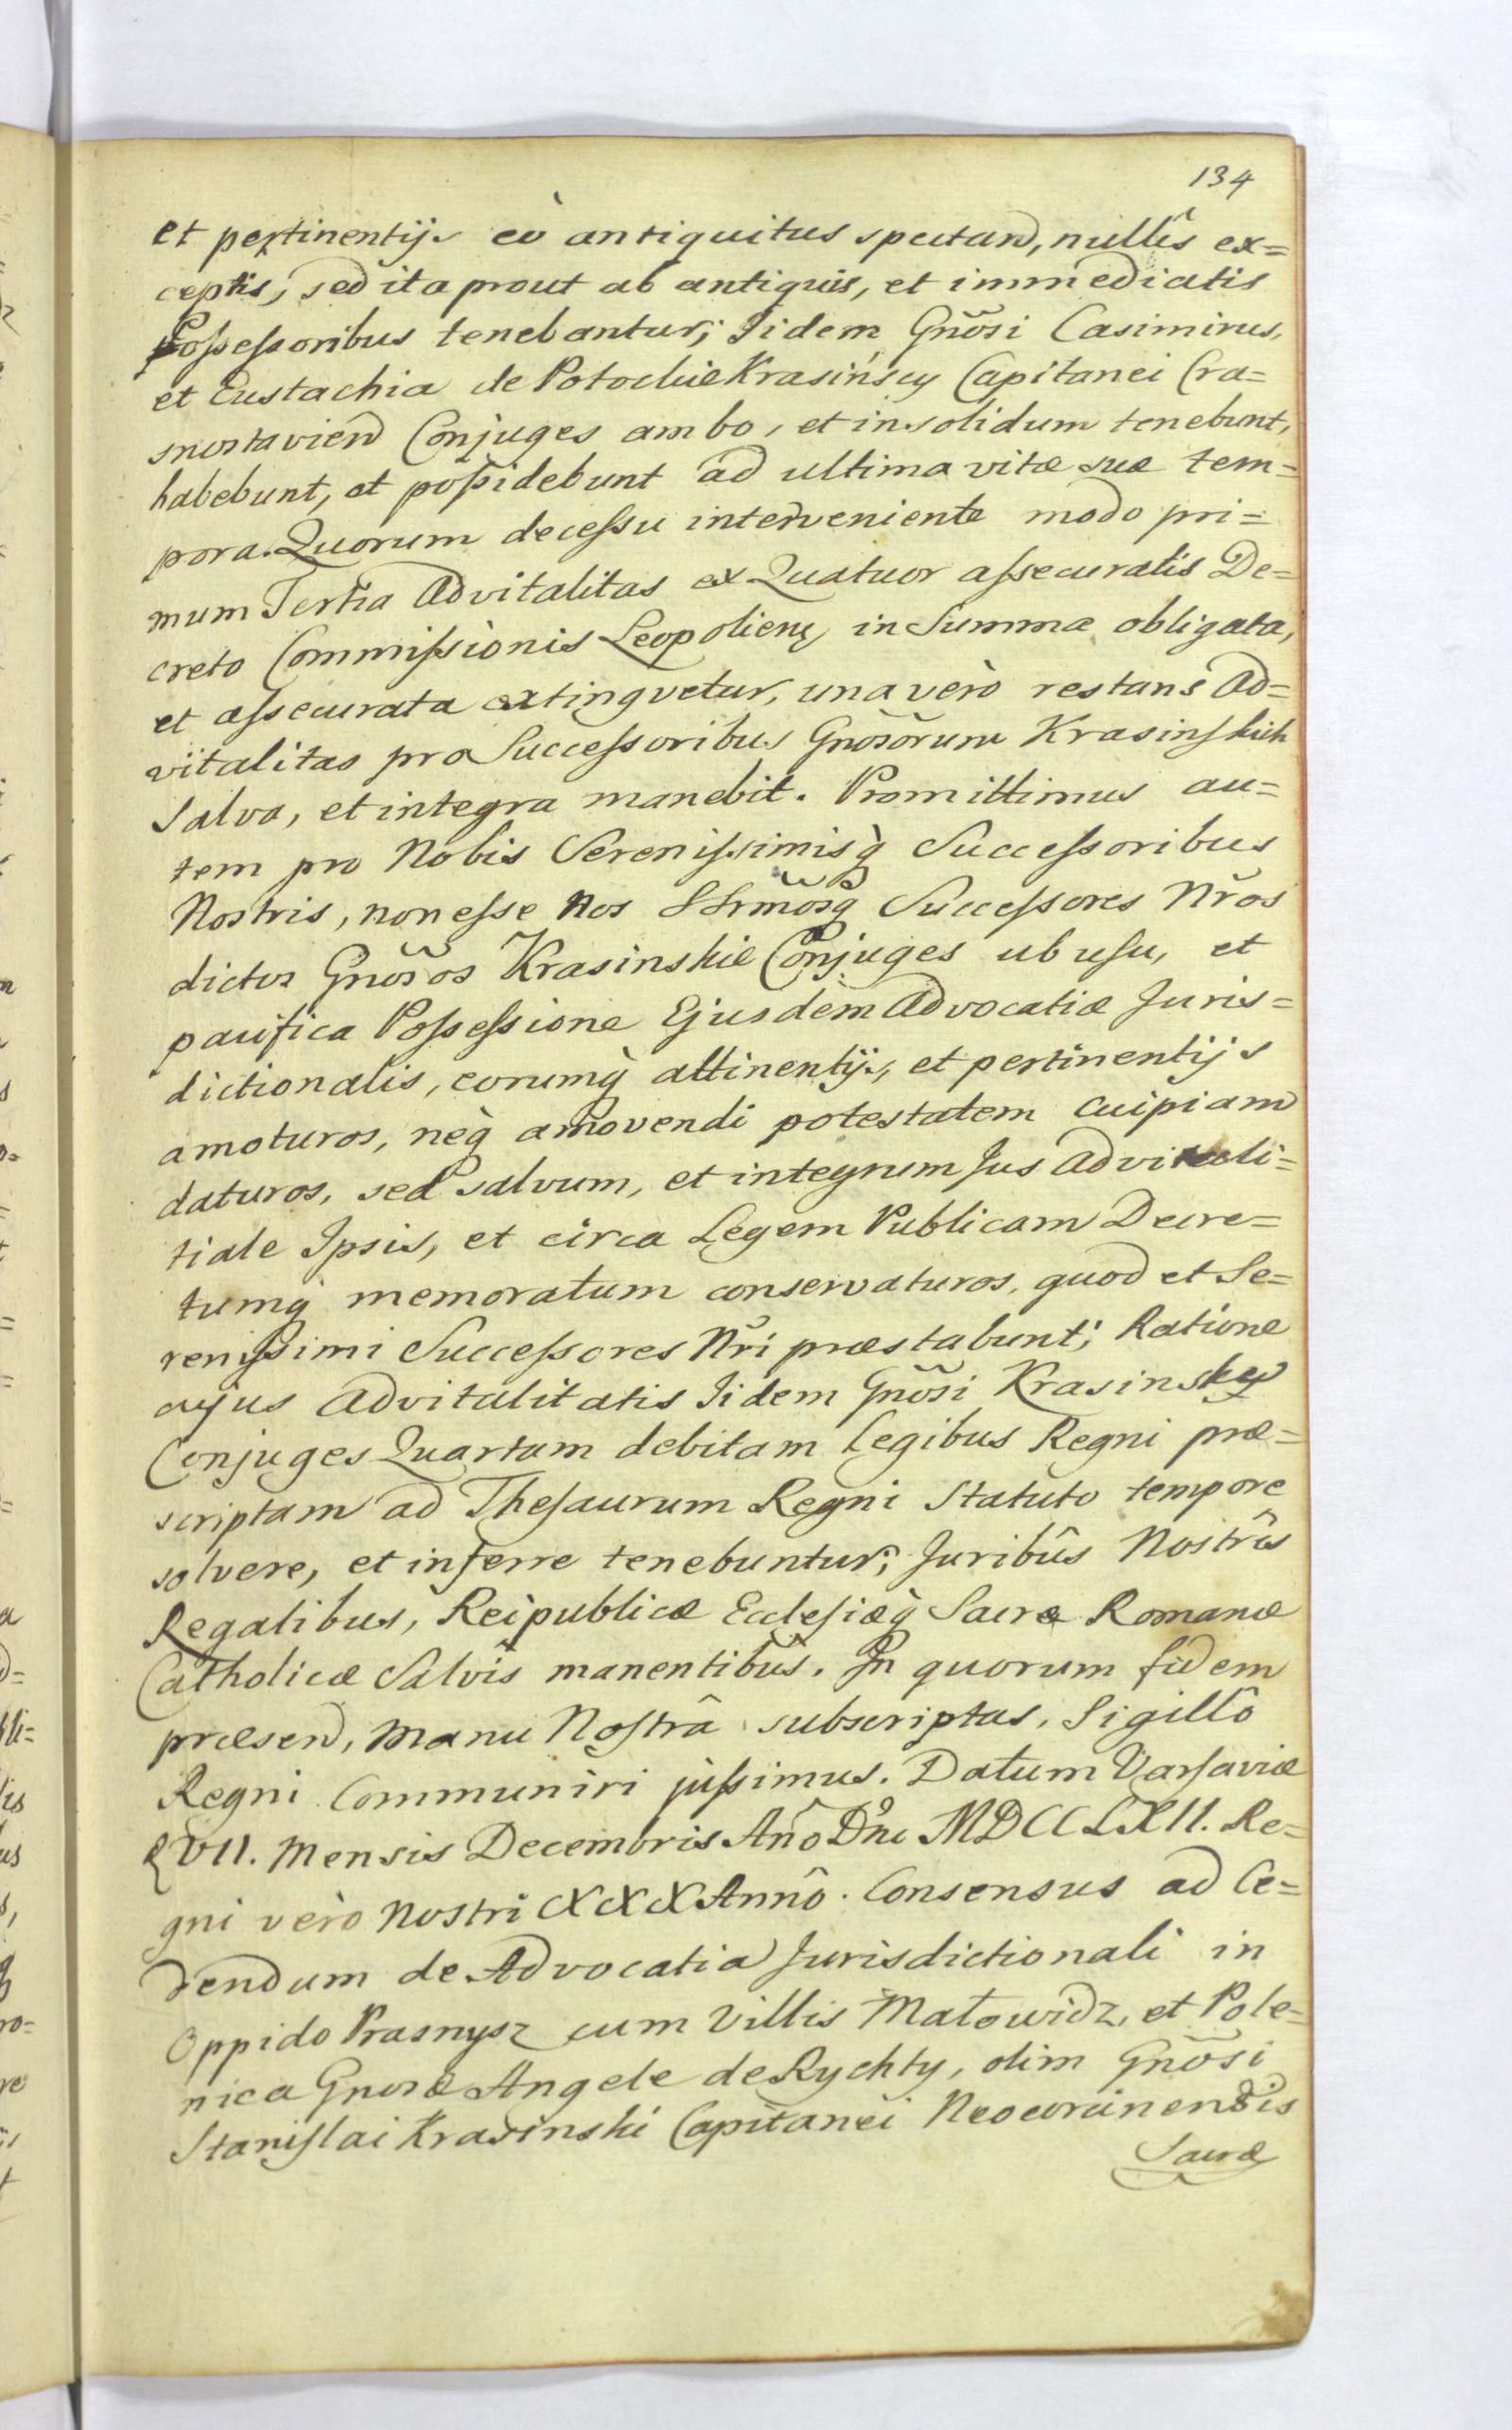 134
et pertinentijs eò antiquitus spectand, nullîs ex=
ceptis, sed ita prout ab antiquis, et immediatis
Poſseſsoribus tenebantur; Iidem Gnõsi Casimirus,
et Eustachia de Potockie Krasińscy Capitanei Cra=
snostaviend Conjuges ambo, et insolidum tenebunt,
habebunt, et poſsidebunt ad ultima vitæ suæ tem=
pora. Quorum deceſsu interveniente modo pri=
mum Tertia Advitalitas ex Quatuor aſsecuratis De=
creto Commiſsionis Leopolienę, in Summa obligata,
et aſsecurata extingvetur, una verò restans Ad=
vitalitas pro Succeſsoribus Gnõsorum Krasinſkich
Salva, et integra manebit. Promittimus au=
tem pro Nobis Sereniſsimisq̀ Succeſsoribus
Nostris, non eſse Nos SSrmõsq̀ Succeſsores Nr̃os
dictos Gnõsos Krasinskie Conjuges ab uſu, et
pacifica Poſseſsione Ejusdem Advocatiæ Juris=
dictionalis, eorumq̀ attinentijs, et pertinentijs
amoturos, neq̀ amovendi potestatem cuipiam
daturos, sed salvum, et integrum Jus Advitali=
tiale Ipsis, et circa Legem Publicam Decre=
tumq̀ memoratum conservaturos, quod et Se=
reniſsimi Succeſsores Nr̃i præstabunt; Ratione
cujus Advitalitatis Iidem Gnõsi Krasinscy
Conjuges Quartam debitam Legibus Regni præ=
scriptam ad Theſaurum Regni Statuto tempore
solvere, et inferre tenebuntur; Juribûs Nostrîs
Regalibus, Reipublicæ Eccleſiæq̀ Sacræ Romanæ
Catholicæ Salvis manentibûs. In quorum fidem
præsend, Manu Noſtrâ subscriptas, Sigillô
Regni Communiri juſsimus. Datum Varſaviæ
XVII. Mensis Decembris Añô Dñi MDCCLXII. Re=
gni verò Nostri XXX Annô. Consensus ad Ce=
dendum de Advocatia Jurisdictionali in
Oppido Prasnysz cum Villis Małowidz, et Pole=
nica Gnosæ Angele de Rychty, olim Gnõsi
Staniſlai Krasinski Capitanei Neocorcinensis
Sacræ